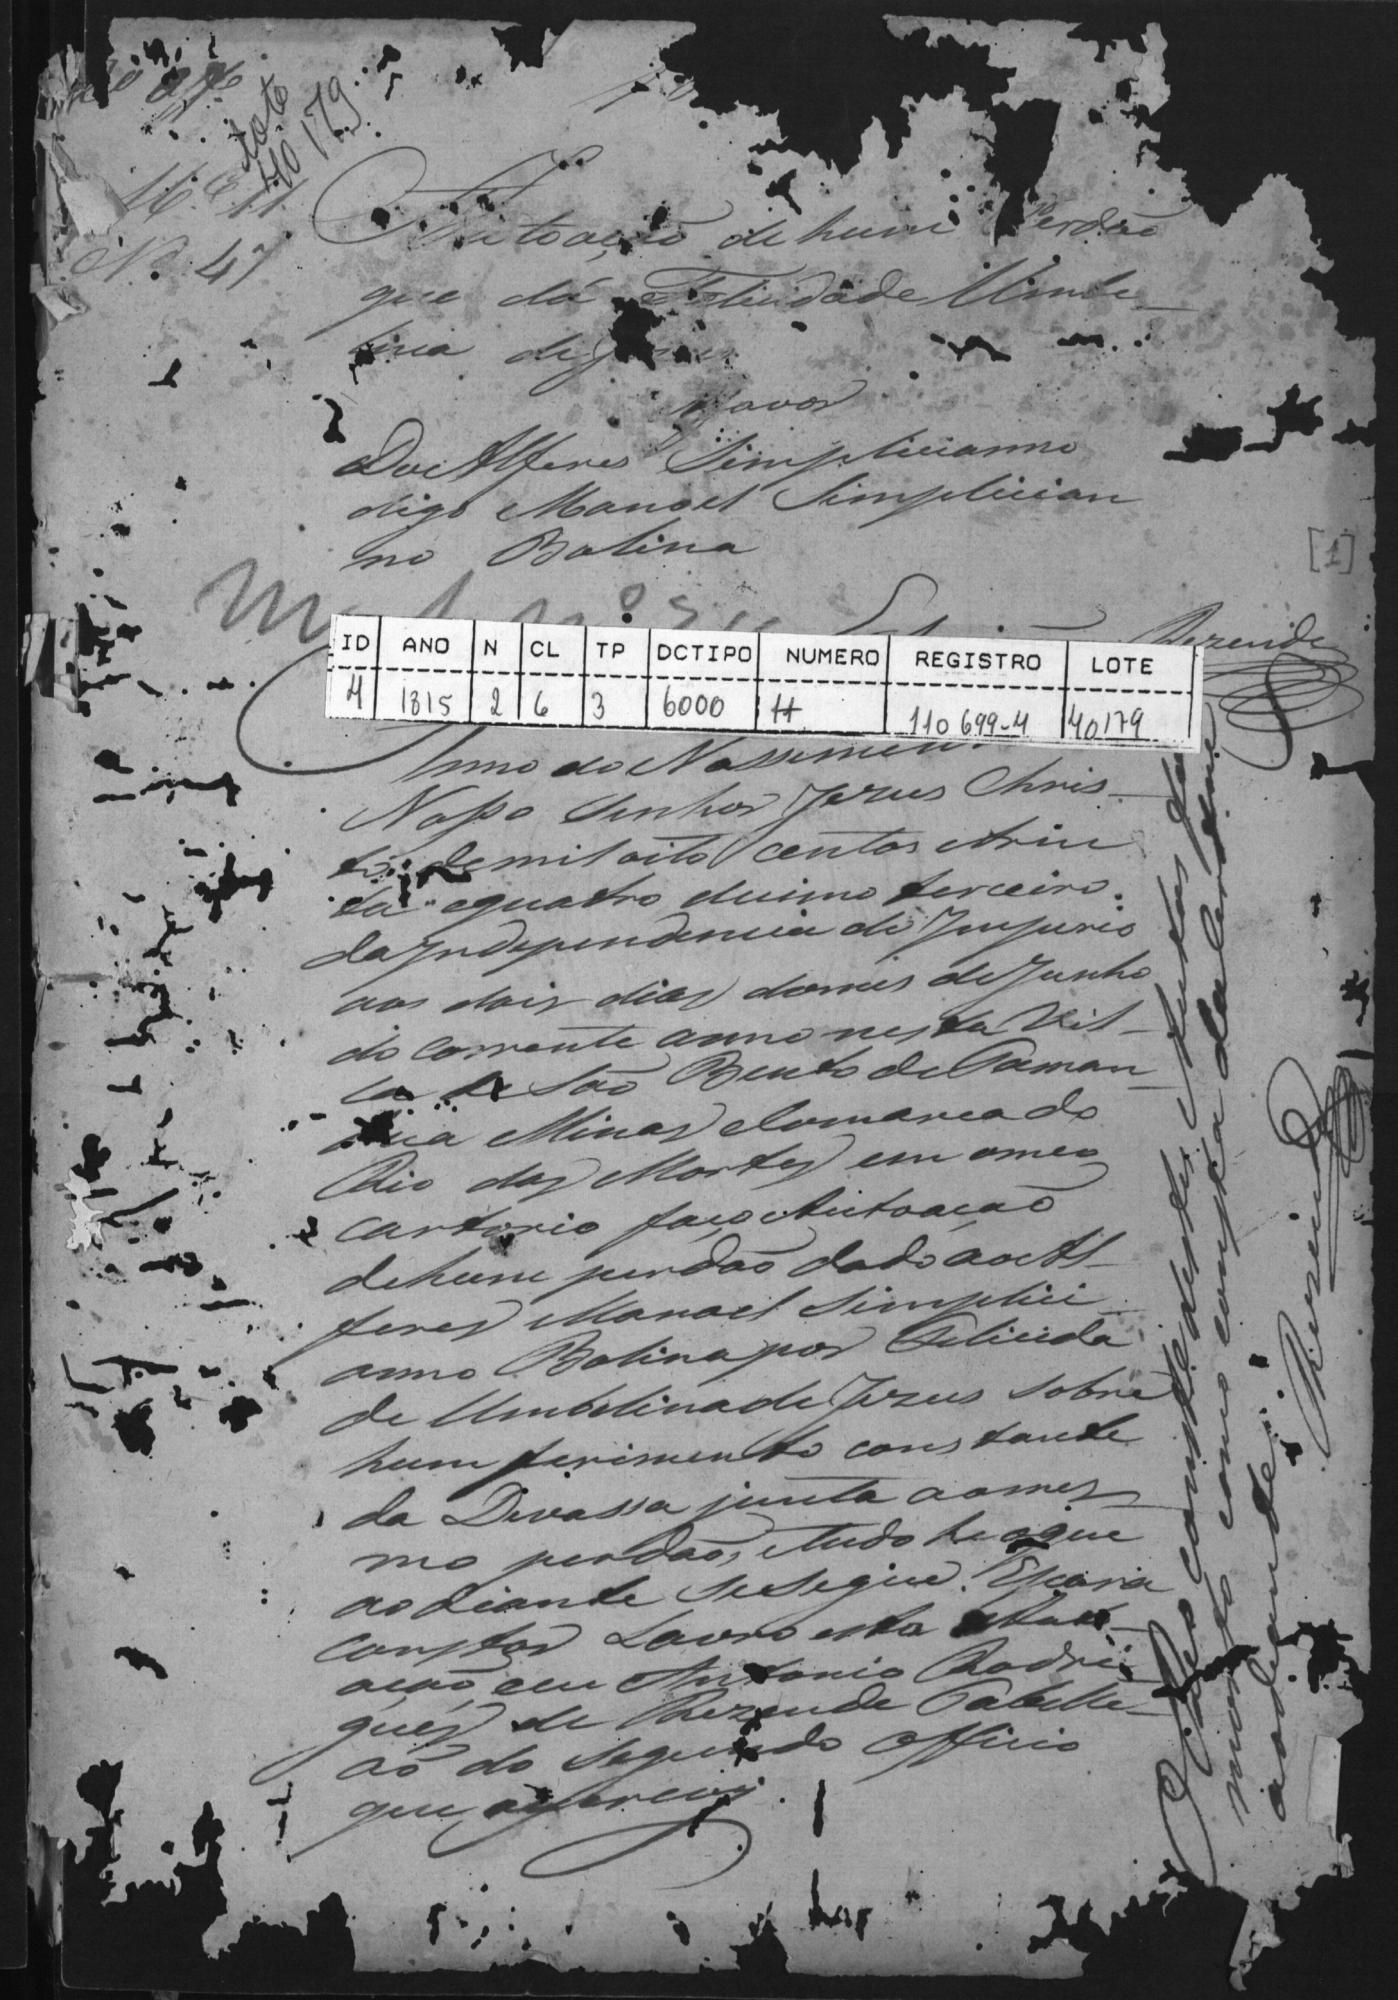 lote
40179
M.e 11
N. 47
Autoação de hum Perdão
que dá Felicidade Umbe-
lina de Jezus
favor
Do Alferes Simplicianno
digo Manoel Simplician
no Bolina
Rezende
[1]
ID ANO N CL TP DCTIPO NUMERO REGISTRO LOTE
4 1815 2 6 3 6000 11 110 699-4 40179
Anno do Nassimen
Nosso Senhor Jezus Chris-
to de mil oito centos etrin
ta equatro decimo terceiro
da Independencia do Imperio
aos dois dias domes de Junho
do corrente anno nesta Vil-
la de São Bento de Taman-
dua Minas eComarca do
Rio das Mortes em omeo
cartorio faço Autoação
dehum perdão dado aoAl-
feres Manoel Simplici
anno Bolina por Felicida
de Umbelina de Jezus sobre
hum ferimento constante
da Devassa junta aomes-
mo perdão, etudo he oque
aodiante sesegue. Epara
constar Lavro esta Auto-
ação eu Antonio Rodri-
gues de Rezende Tabelli-
aõ do segundo officio
que escrevy
mento como consta da
aodiante
Rezende